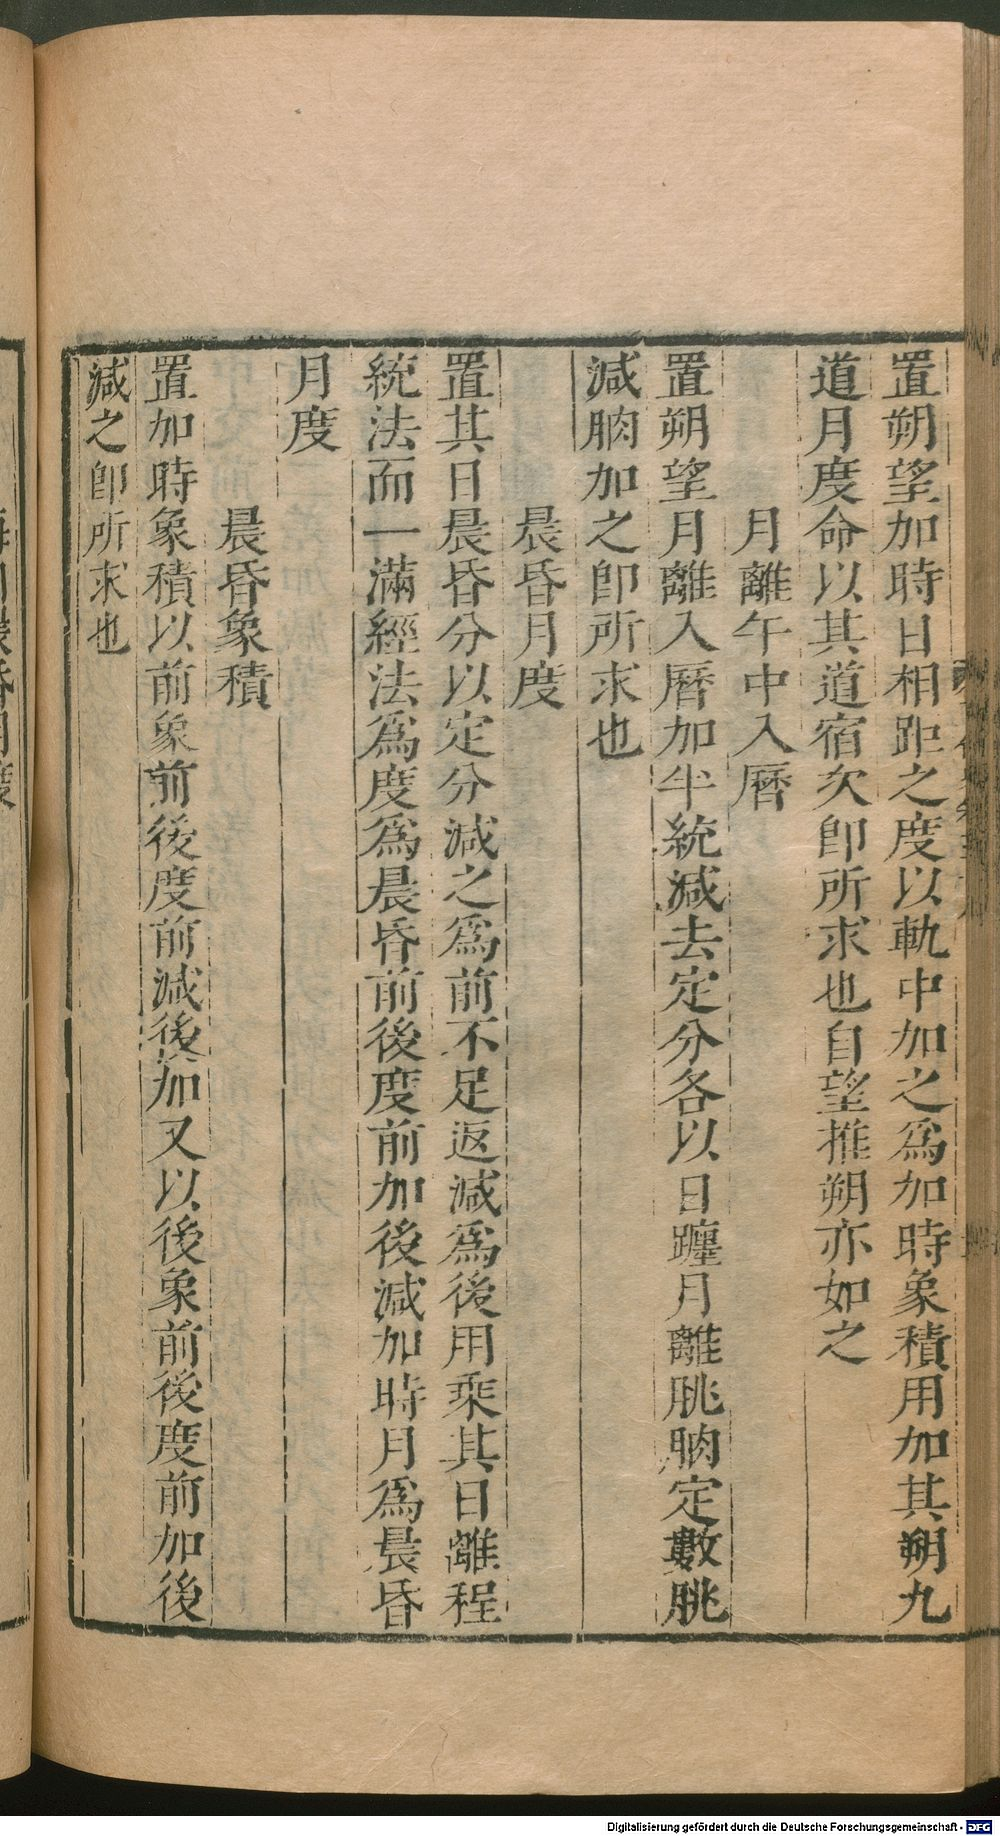 置朔望加時日相距之度以軌中加之爲加時象積用加其朔九
道月度命以其道宿次卽所求也自望推朔亦如之
月離午中入曆
置朔望月離入曆加半統減去定分各以日躔月離朓朒定數朓
減朒加之卽所求也
晨昏月度
置其日晨昏分以定分減之爲前不足返減爲後用乘其日離程
統法而一滿經法爲度爲晨昏前後度前加後減加時月爲晨昏
月度
晨昏象積
置加時象積以前象前後度前減後加又以後象前後度前加後
減之卽所求也
Digitalisierung gefördert durch die Deutsche Forschungsgemeinschaft - DFG